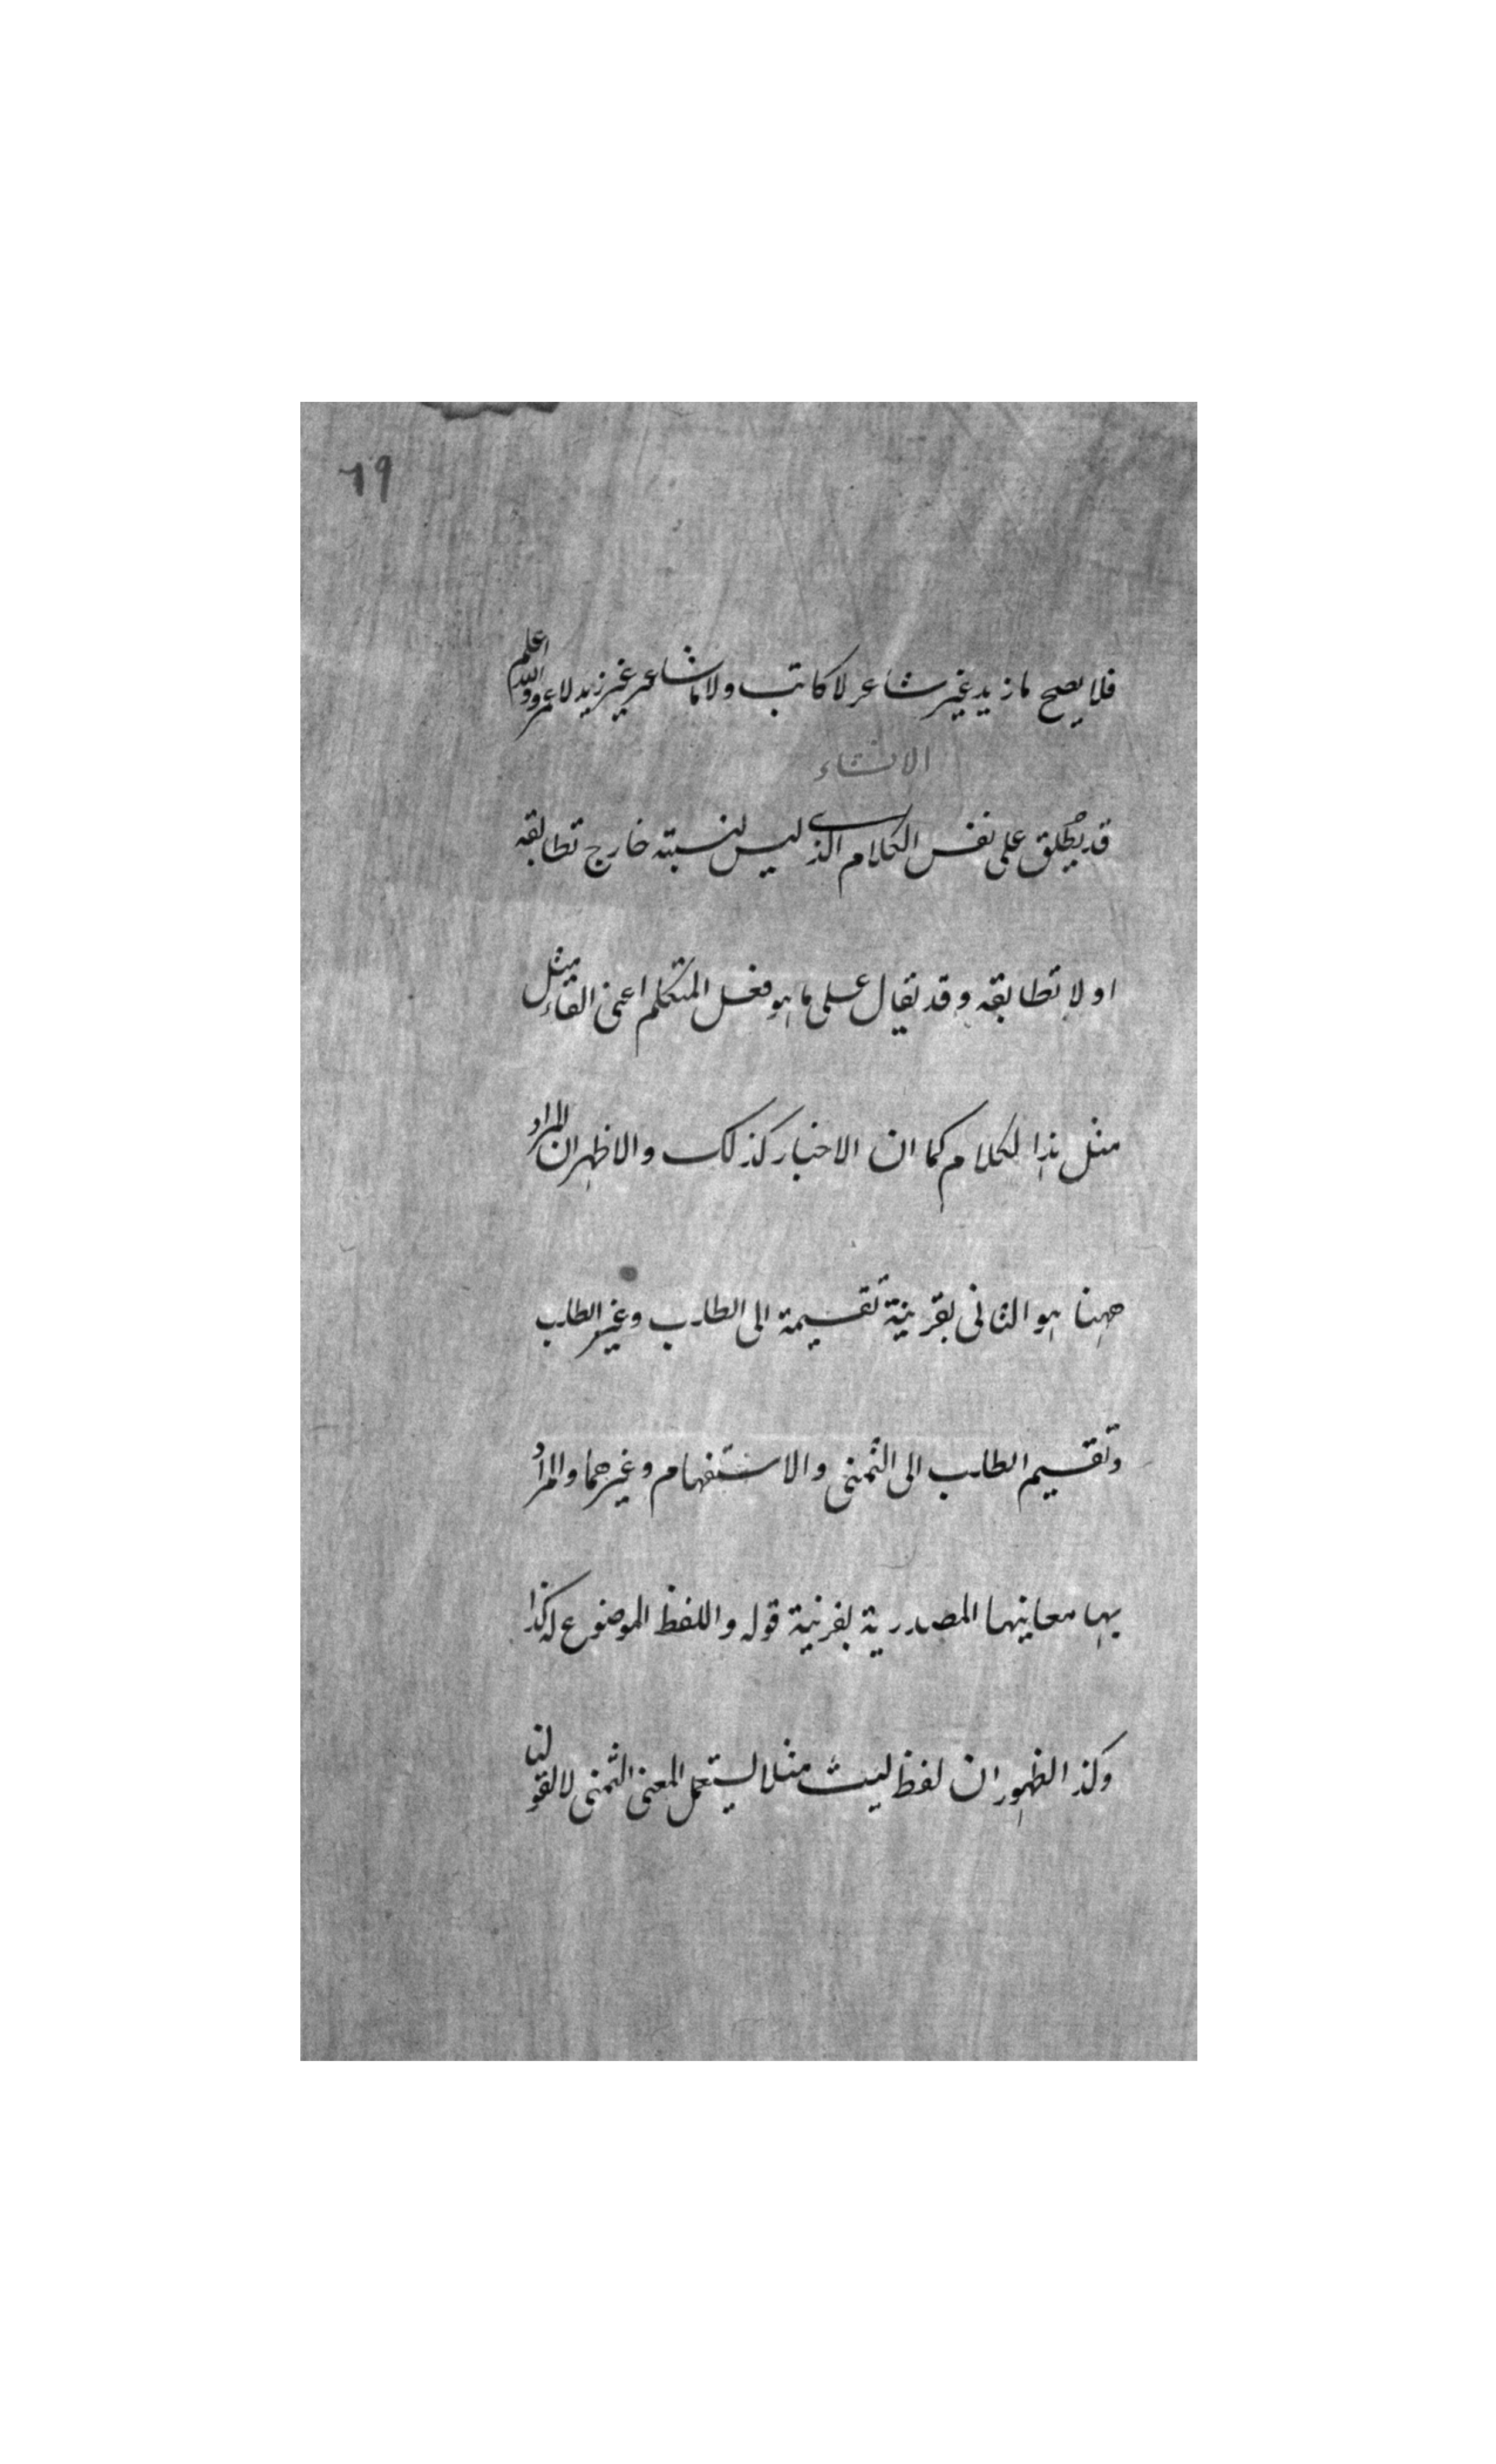 ٦٩
فلا يصح ما زيد غير شاعر لا كاتب ولا ما شاعر غير زيد لا عمرو والله اعلم
الانشاء
قد يطلق على نفس الكلام الذي ليس لنسبته خارج تطابقه
او لا تطابقه وقد يقال على ما هو فعل المتكلم اعنى القاء مثل
مثل هذا الكلام كما ان الاخبار كذلك والاظهر ان المراد
ههنا هو الثانى بقرينة تقسيمه الى الطلب وغير الطلب
وتقسيم الطلب الى التمنى والاستفهام وغيرهما والمراد
بها معانيها المصدرية بقرينة قوله واللفظ الموضوع له كذا
وكذا لظهور ان لفظ ليت مثلا يستعمل لمعنى التمنى لا لقولنا